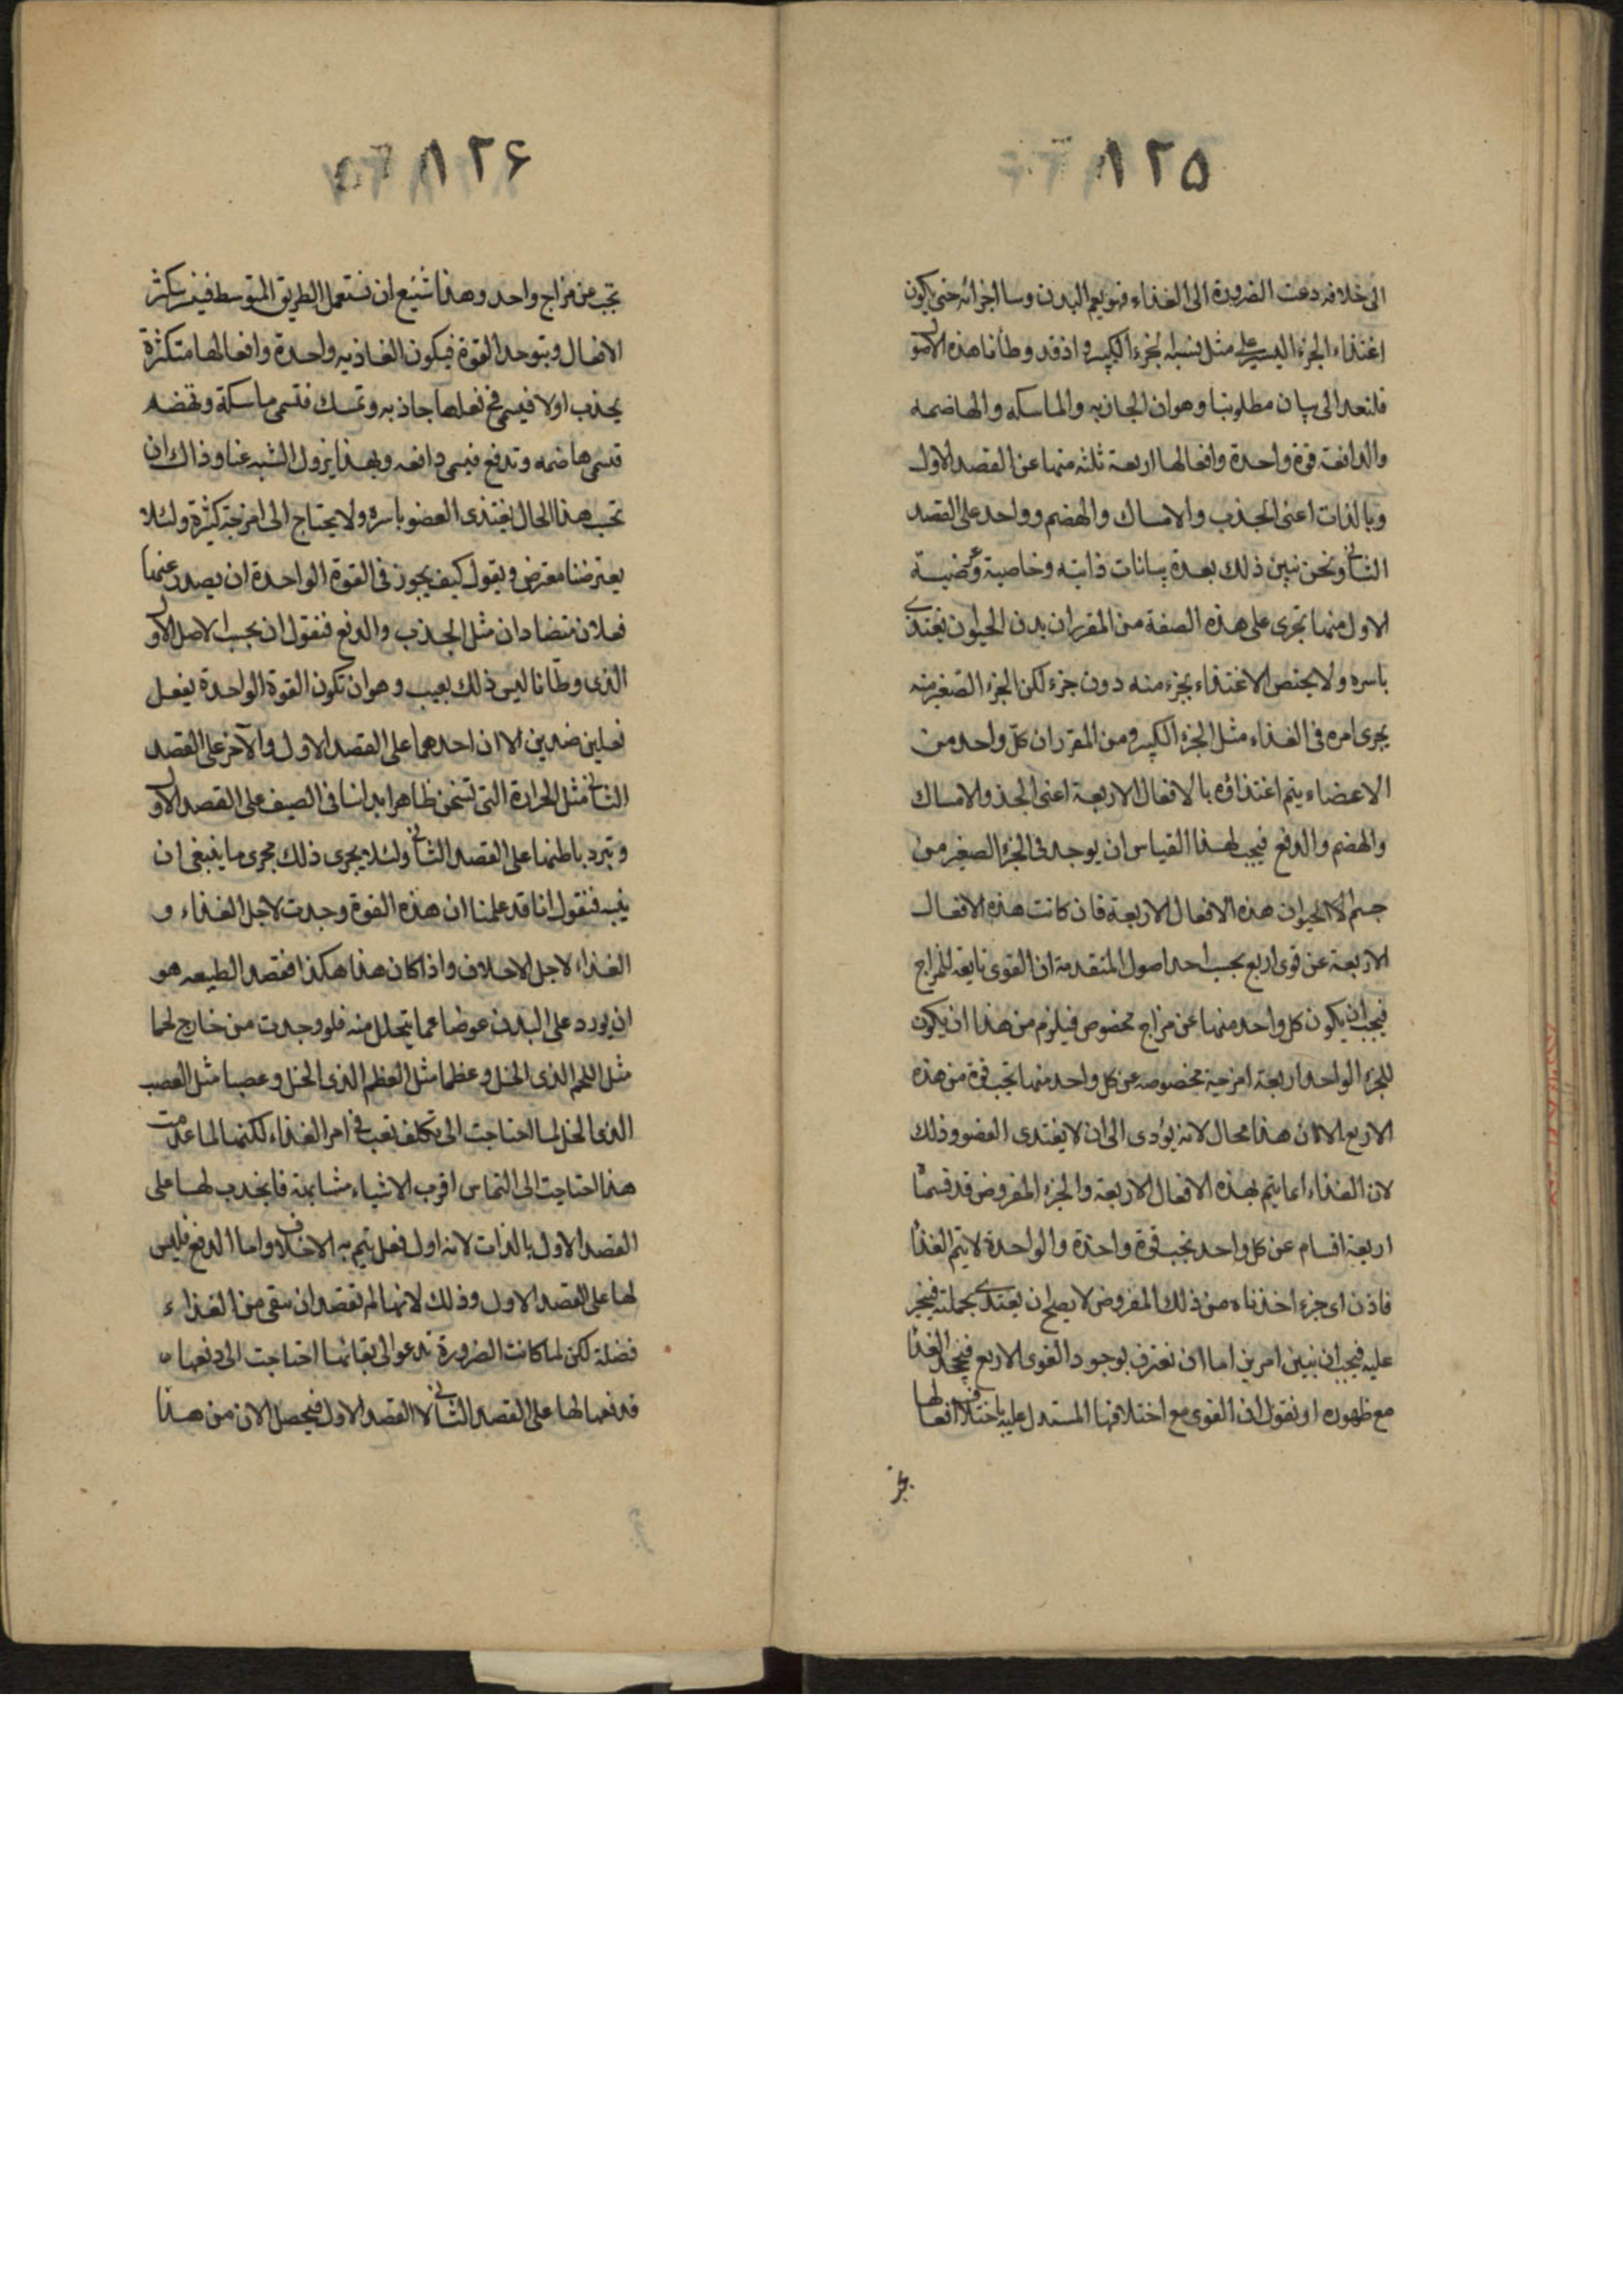 ١٢٥
الى خلافه دعت الضرورة الى الغذاء فهو يعم البدن وسا اجزائه حتى يكون
اغتذاء الجزء اليسير على مثل نسبة الجزء الكبير واذ قد وطأنا هذه الاصول
فلنعد الى بيان مطلوبنا وهو ان الجاذبه والماسكه والهاضمه
والدافعة قوة واحدة وافعالها اربعة ثلثه منها عن القصد الاول
وبالذات اعنى الجذب والامساك والهضم وواحد على القصد
الثانى ونحن نبين ذلك بعدة بيانات ذاتيه وخاصية وعرضية
الاول منها تجرى على هذه الصفة من المقرر ان بدن الحيوان يغتذى
باسره ولا يختص الاغتذاء بجزء منه دون جزء لكن الجزء الصغير منه
يجرى امره فى الغذاء مثل الجزء الكبير ومن المقرر ان كل واحد من
الاعضاء يتم اغتذاؤه بالافعال الاربعة اعنى الجذ والامساك
والهضم والدفع فيجب لهذا القياس ان يوجد فى الجزء الصغير من
جسم الحيوان هذه الافعال الاربعة فان كانت هذه الافعال
الاربعة عن قوى اربع بحسب احد اصول المتقدمة ان القوى تابعة للمزاج
فيجب ان يكون كل واحد منها عن مزاج مخصوص فيلزم من هذا ان يكون
للجزء الواحد اربعة امزجة مخصوصه عن كل واحد منها تجب قوة من هذه
الاربع الا ان هذا محال لانه يؤدى الى ان لا يغتذى العضو وذلك
لان الغذاء انما يتم بهذه الافعال الاربعة والجزء المفروض قد قسمنا
اربعة اقسام عن كل واحد تجب قوة واحدة والواحدة لا يتم الغذا
فاذن اى جزء اخذناه من ذلك المفروض لا يصلح ان يغتذى بجملته فيخبر
عليه فيجب ان نبين امرين اما ان نعترف بوجود القوى الاربع فنجحد الغذا
مع ظهوره او نقول ان القوى مع اختلافها المستدل عليه باختلاف افعالها
١٢۶
تجب عن مزاج واحد وهذا شنيع ان نستعمل الطريق المتوسط فيـ تكثر
الافعال ويتوحد القوة فيكون الغاذيه واحدة وافعالها متكثرة
يجذب اولا فيسمى فى فعلها جاذبه وتمسك فتسمى ماسكة وتهضم
فتسمى هاضمه وتدفع فيسمى دافعه وبهذا يزول الشبه عنا وذاك ان
تحسب هذا الحال يغتذى العضو باسره ولا يحتاج الى امزجة كثيرة ولئلا
يعترضنا معترض ويقول كيف يجوز فى القوة الواحدة ان يصدر عنها
فعلان متضادان مثل الجذب والدفع فنقول ان بحسب الاصل الاول
الذى وطّأنا ليس ذلك بعيب وهو ان تكون القوة الواحدة يفعل
فعلين ضدين الا ان احدهما على القصد الاول والآخر على القصد
الثانى مثل الحرارة التى تسخن ظاهر ابداننا فى الصيف على القصد الاول
وتبرد باطنها على القصد الثانى ولئلا يجرى ذلك مجرى ما ينبغى ان
فنقول انا قد علمنا ان هذه القوة وجدت لاجل الغذاء و
الغذاء لاجل الاخلاف واذا كان هذا هكذا فقصد الطبيعه هو
ان يورد على البدن عوضا عما يتحلل منه فلو وجدت من خارج لحما
مثل اللحم الذى انحل وعظما مثل العظم الذى انحل وعصبا مثل العصب
الذى انحل لما احتاجت الى تكلف تعب فى امر الغذاء لكنها لما عدمت
هذا احتاجت الى التماس اقرب الاشياء مشابهة فالجذب لها على
القصد الاول بالذات لانه اول فعل يتم به الاخلاف واما الدفع فليس
لها على القصد الاول وذلك لانها لم تقصد ان يبقى من الغذاء
فضلة لكن لما كانت الضرورة تدعوا الى بقائها احتاجت الى دفعها
فدفعها لها على القصد الثانى لا القصد الاول فيحصل الان من هذا